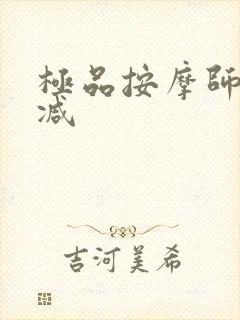 極品按摩師
减
吉河美希